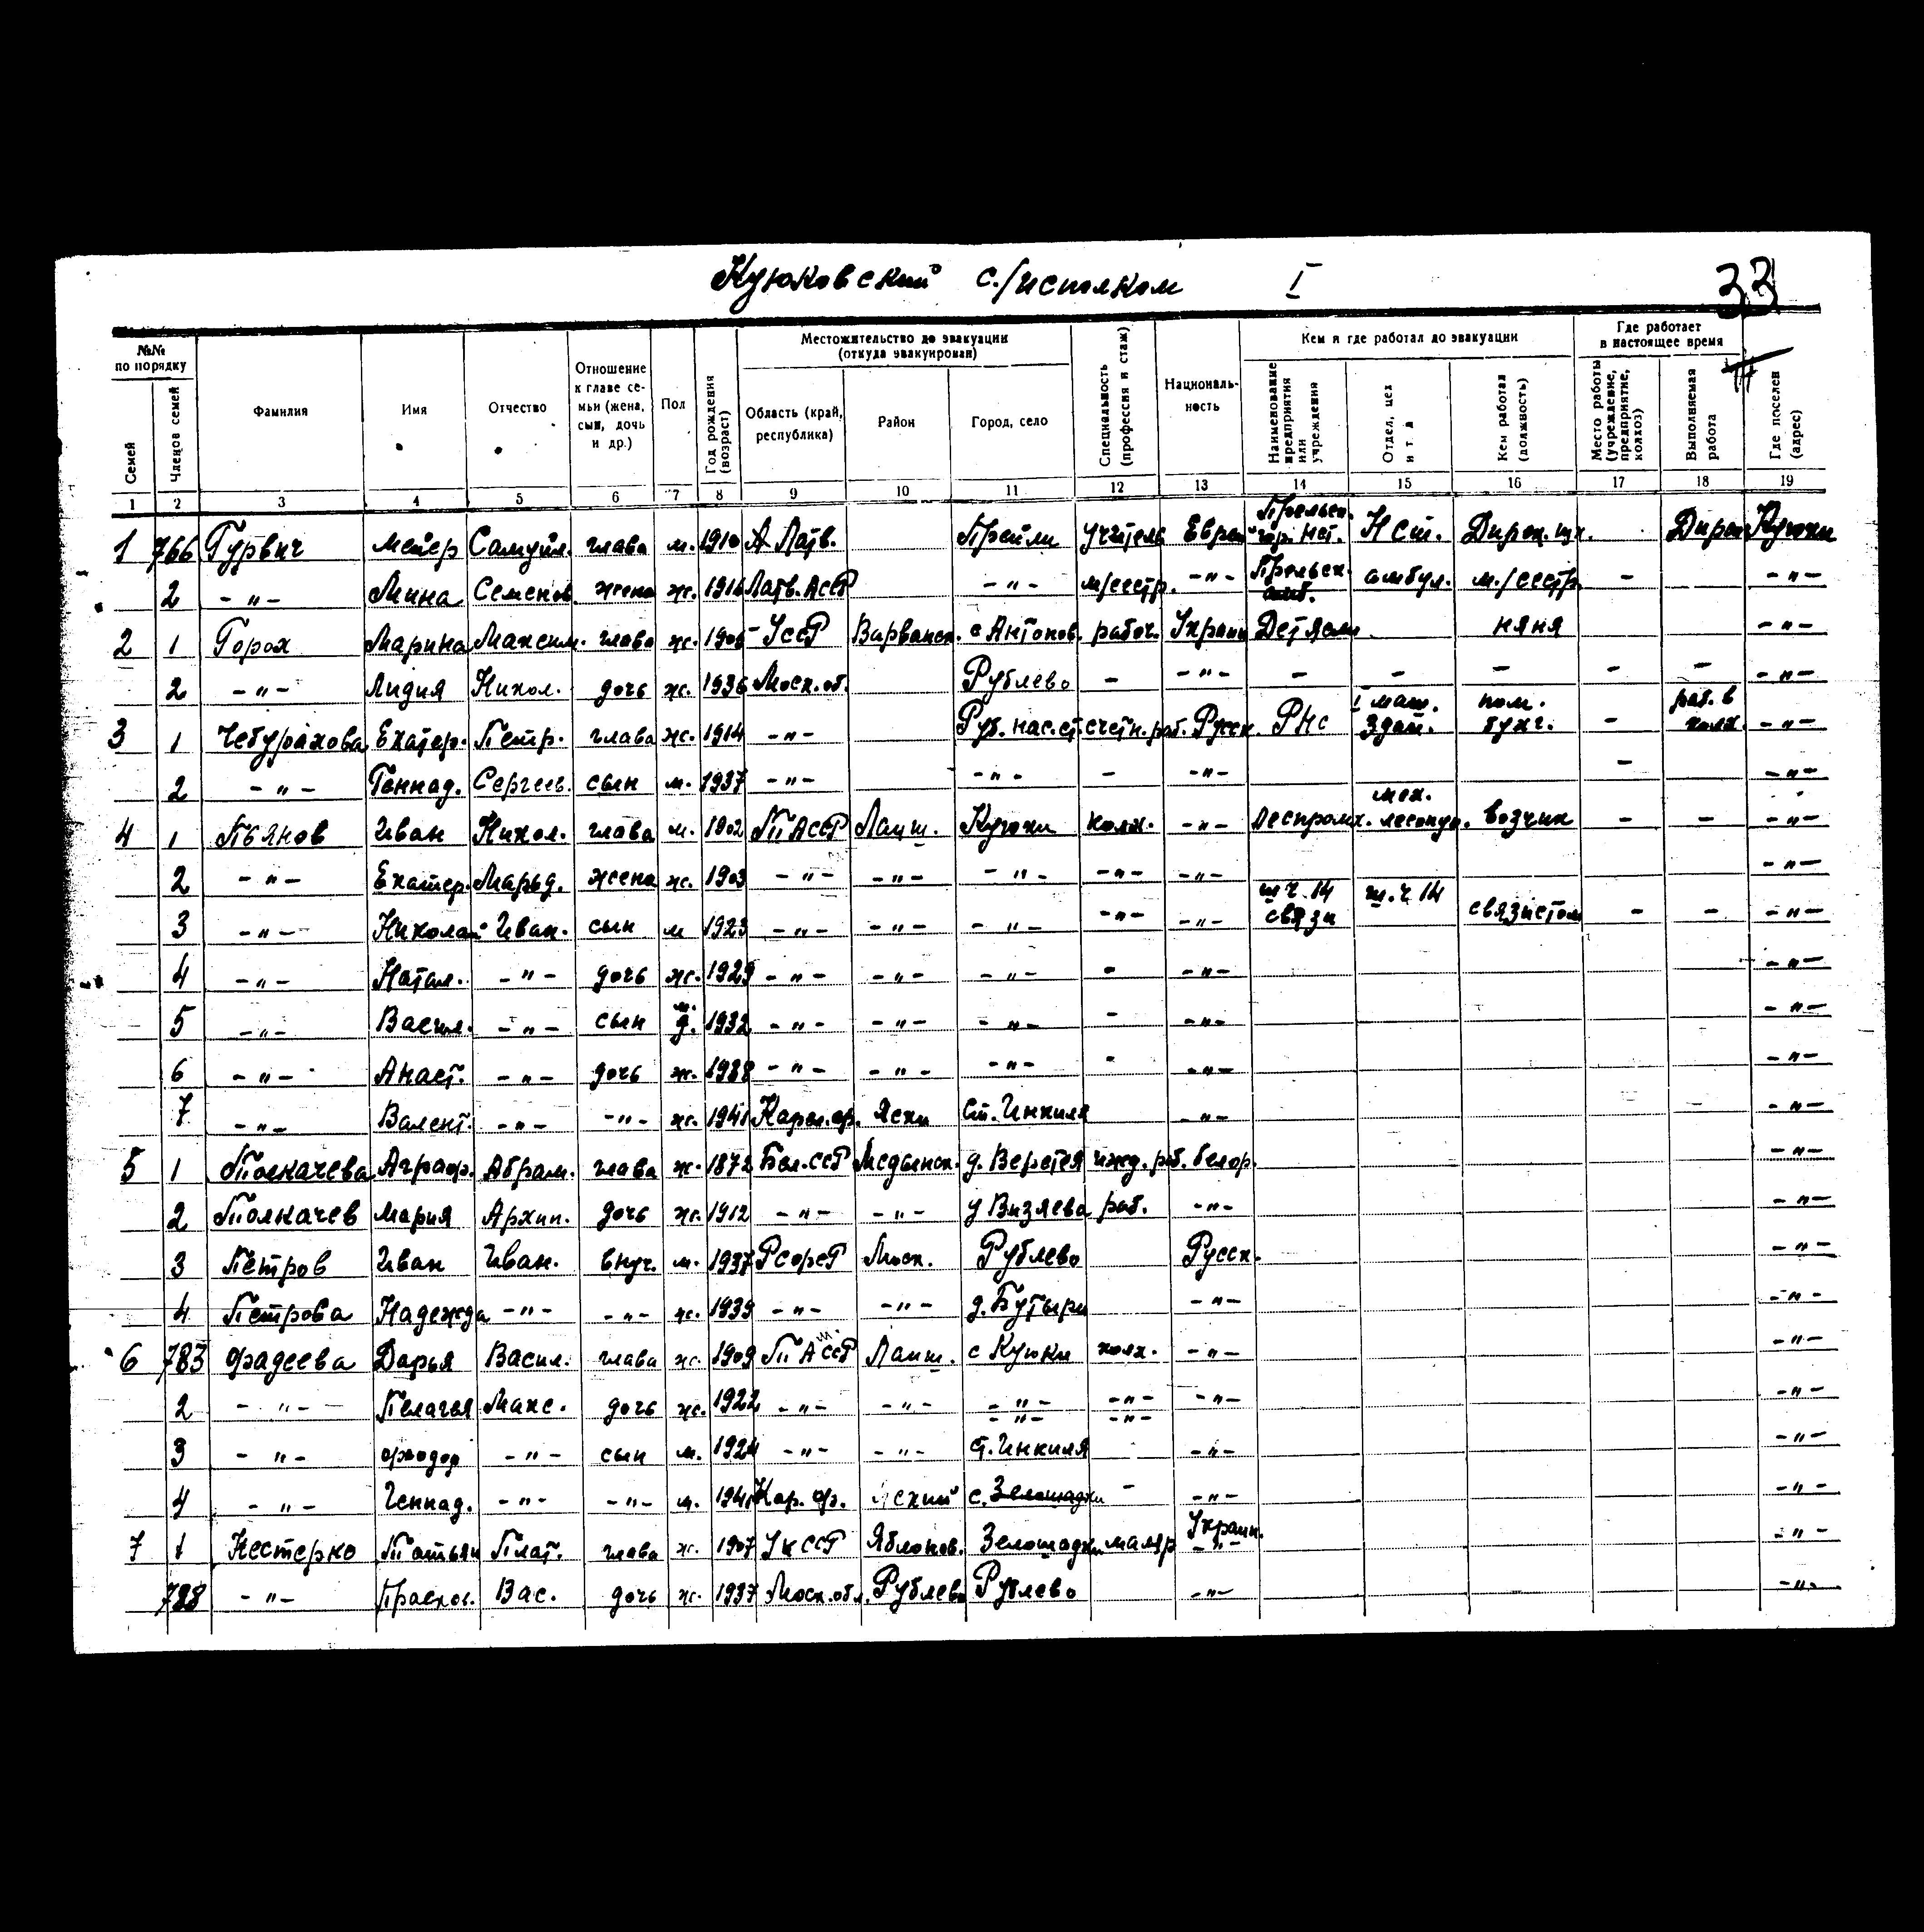 Куюковский с./исполком I 33
№№ по порядку
Местожительство до эвакуации (откуда эвакуирован)
Кем и где работал до эвакуации
Где работает в настоящее время
Семей | Членов семей | Фамилия | Имя | Отчество | Отношение к главе семьи (жена, сын, дочь и др.) | Пол | Год рождения (возраст) | Область (край, республика) | Район | Город, село | Специальность (профессия и стаж) | Националь-ность | Наименование предприятия или учреждения | Отдел, цех и т. д | Кем работал (должность) | Место работы (учреждение, предприятие, колхоз) | Выполняемая работа | Где поселен (адрес)
1 2 3 4 5 6 7 8 9 10 11 12 13 14 15 16 17 18 19
1 766 Гурвич Мейер Самуйл. глава м. 1910 Латв. Прейли учитель Евреи НСш. Дирек. шк. Дирек Куюки
2 -"- Мина Семенов. жена ж. 1916 Латв. АССР -"- м/сестр. -"- амбул. м./сестр. - -"-
2 1 Горох Марина Максим. глава ж. 1906 УССР Варванск. с Антонов. рабоч. Украин Дет ясли няня -"-
2 -"- Лидия Никол. дочь ж. 1936 Моск. об. Рублево - -"- - - - - - -"-
3 1 Чебурахова Екатер. Петр. глава ж. 1914 -"- Руб. нас. ст. счетн. раб. Русск. РНС I маш. здан. пом. бухг. - раб. в колх. -"-
2 -"- Геннад. Сергеев. сын м. 1937 -"- -"- - -"- - -"-
4 1 Пьянов Иван Никол. глава м. 1902 ТАССР Лаиш. Куюки колх. -"- Леспромх. мех. лесопун. возчик - - -"-
2 -"- Екатер. Марьд. жена ж. 1903 -"- -"- -"- -"- -"- -"-
3 -"- Николай Иван. сын м 1923 -"- -"- -"- -"- -"- ш ч. 14 связи ш. ч 14 связистом - - -"-
4 -"- Натал. -"- дочь ж. 1929 -"- -"- -"- - -"- -"-
5 -"- Васил. -"- сын м. 1932 -"- -"- -"- - -"- -"-
6 -"- Анаст. -"- дочь ж. 1938 -"- -"- -"- - -"- -"-
7 -"- Валент. -"- -"- ж. 1941 Карел. ф. Яски Ст. Инкиля -"- -"-
5 1 Толкачева Аграф. Абрам. глава ж. 1872 Бел. ССР Медынск. д. Веретея ижд. раб. белор. -"-
2 Толкачев Мария Архип. дочь ж. 1912 -"- -"- д Визяева раб. -"- -"-
3 Петров Иван Иван. внуч. м. 1937 РСФСР Моск. Рублево Русск. -"-
4 Петрова Надежда -"- -"- ж. 1939 -"- -"- д. Бутыри -"- -"-
6 783 Фадеева Дарья Васил. глава ж. 1909 ТАССР Лаиш. с Куюки колх. -"- -"-
2 -"- Пелагея Макс. дочь ж. 1922 -"- -"- -"- -"- -"- -"-
3 -"- Феодор -"- сын м. 1924 -"- -"- -"- -"- -"- -"-
4 -"- Геннад. -"- -"- м. 1941 Кар. ф. Яский ст. Инкиля - -"- -"-
7 1 Нестерко Татьян Плат. глава ж. 1907 УкССР Яблонов. Зелошадки маляр Украин. -"-
788 -"- Прасков. Вас. дочь ж. 1937 Моск. обл. Рублево Рублево -"- -"-